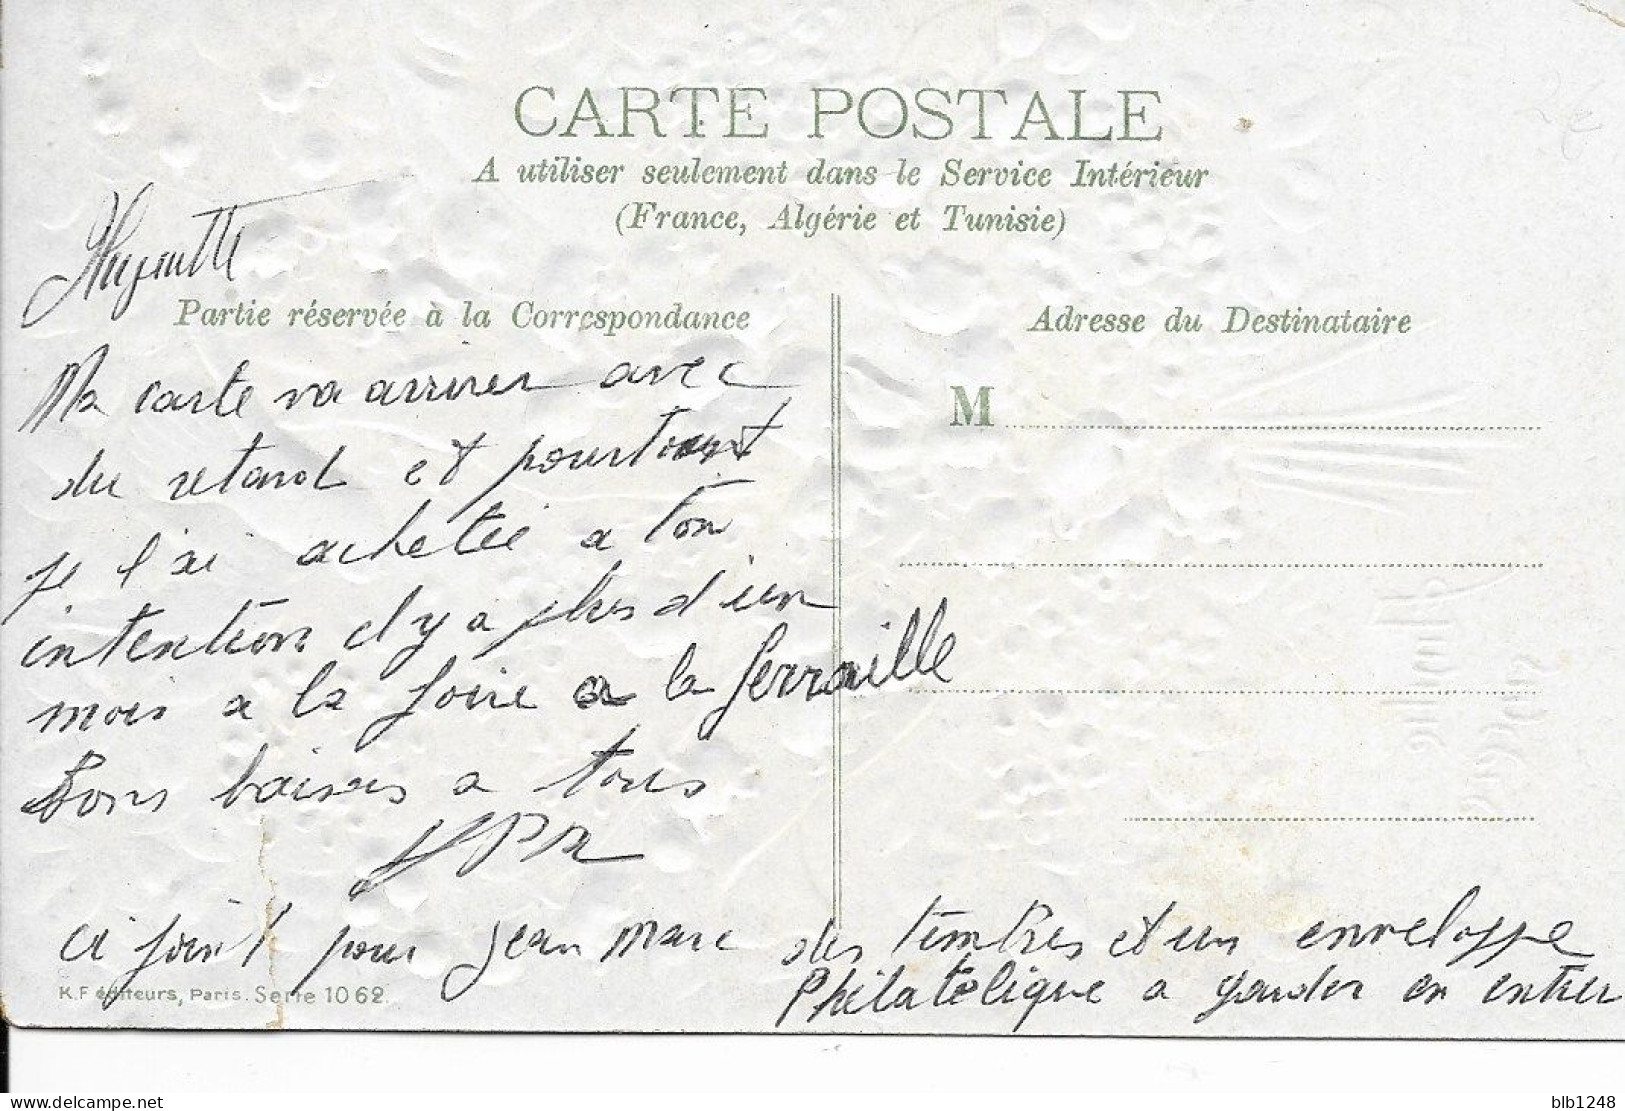 CARTE POSTALE
A utiliser seulement dans le Service Intérieur
(France, Algérie et Tunisie)
Huguette
Partie réservée à la Correspondance
Adresse du Destinataire
M
Ma carte va arriver avec
du retard et pourtant
je l'ai achetée a ton
intention il y a plus d'un
mois a la foire a la ferraille
Bons baisers a tous
ci joint pour jean marc des timbres et un enveloppe
Philatelique a garder en entier
K.F éditeurs, Paris. Serie 1062.
delcampe.net
blb1248